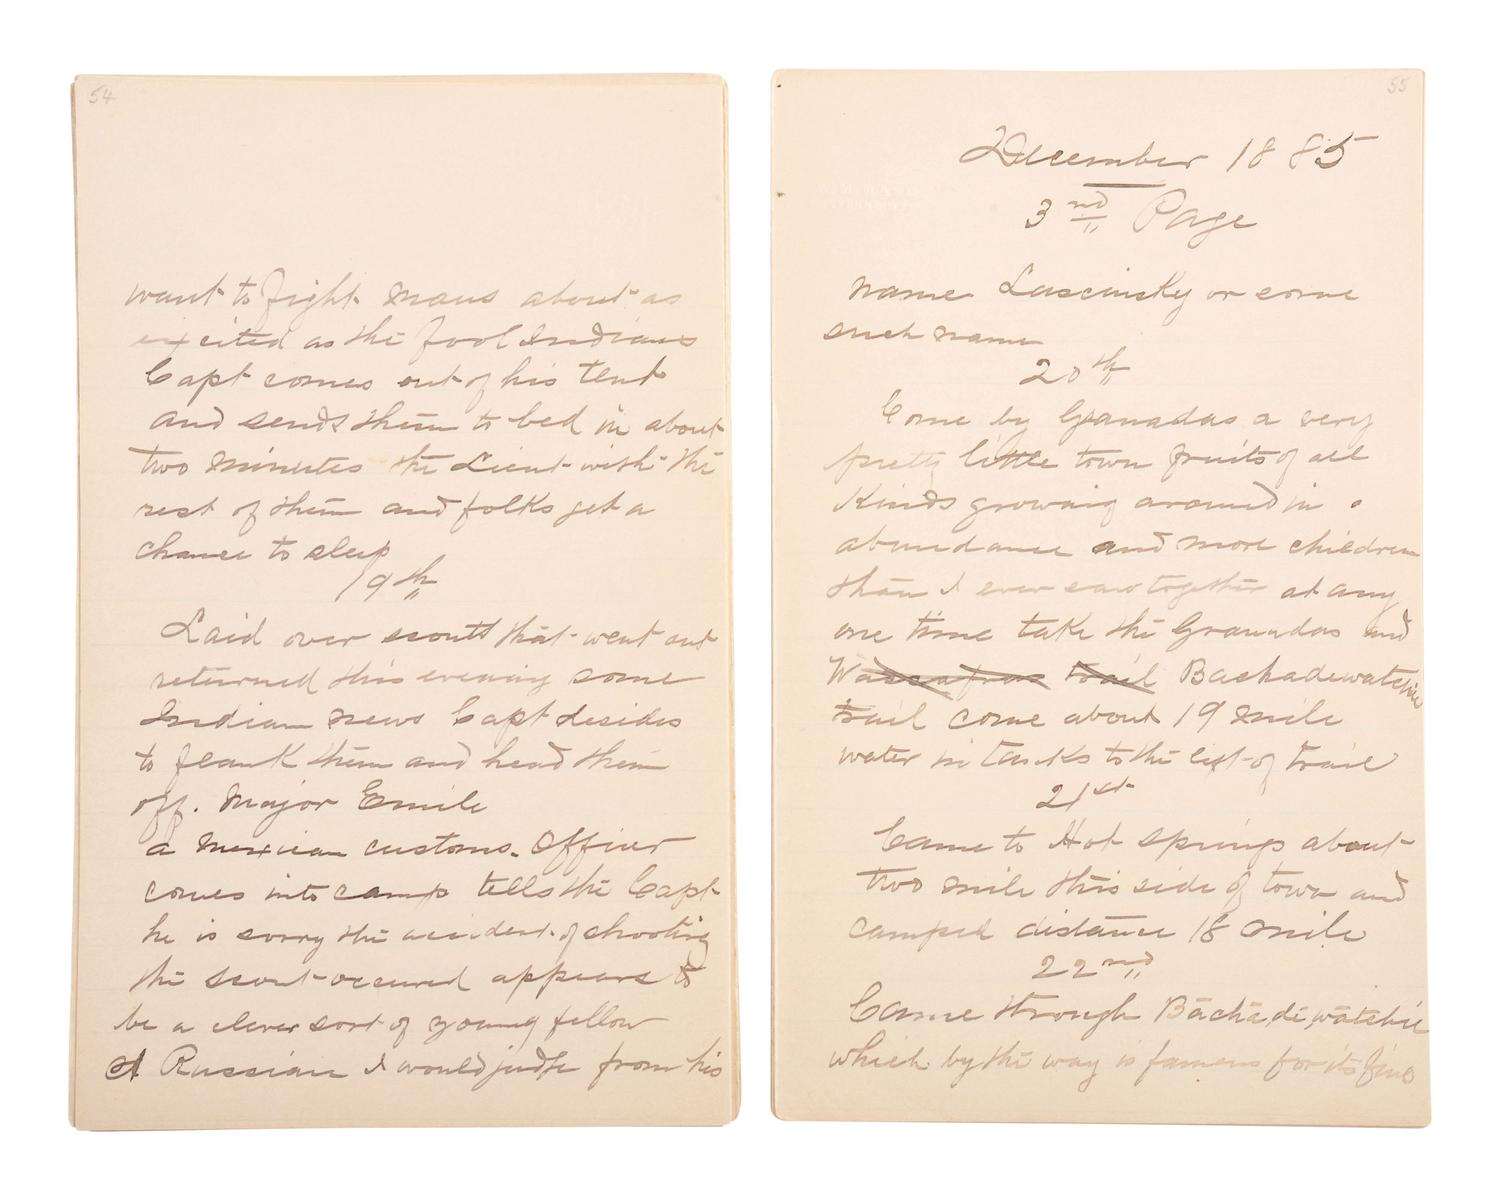 54
want to fight Maus about as
excited as the fool Indians
Capt comes out of his tent
and sends them to bed in about
two minutes the Lieut with the
rest of them and folks get a
chance to sleep
19th
Laid over scouts that went out
returned this evening some
Indian news Capt desides
to flank them and head them
off. Major Emile
a mexican customs. Officer
comes into camp tells the Capt
he is sorry the accident of shooting
the scout occured appears to
be a clever sort of young fellow
A Russian I would judge from his
55
December 1885
3nd Page
name Lascinsky or some
such name
20th
Come by Granadas a very
pretty little town fruits of all
Kinds growing around in
abundance and more children
than I ever saw together at any
one time take the Granadas and
Wassafras trail Bachadewatchie
trail come about 19 mile
water in tanks to the left of trail
21st
Came to Hot springs about
two mile this side of town and
camped distance 18 mile
22nd
Came through Bachadewatchie
which by the way is famous for its fine